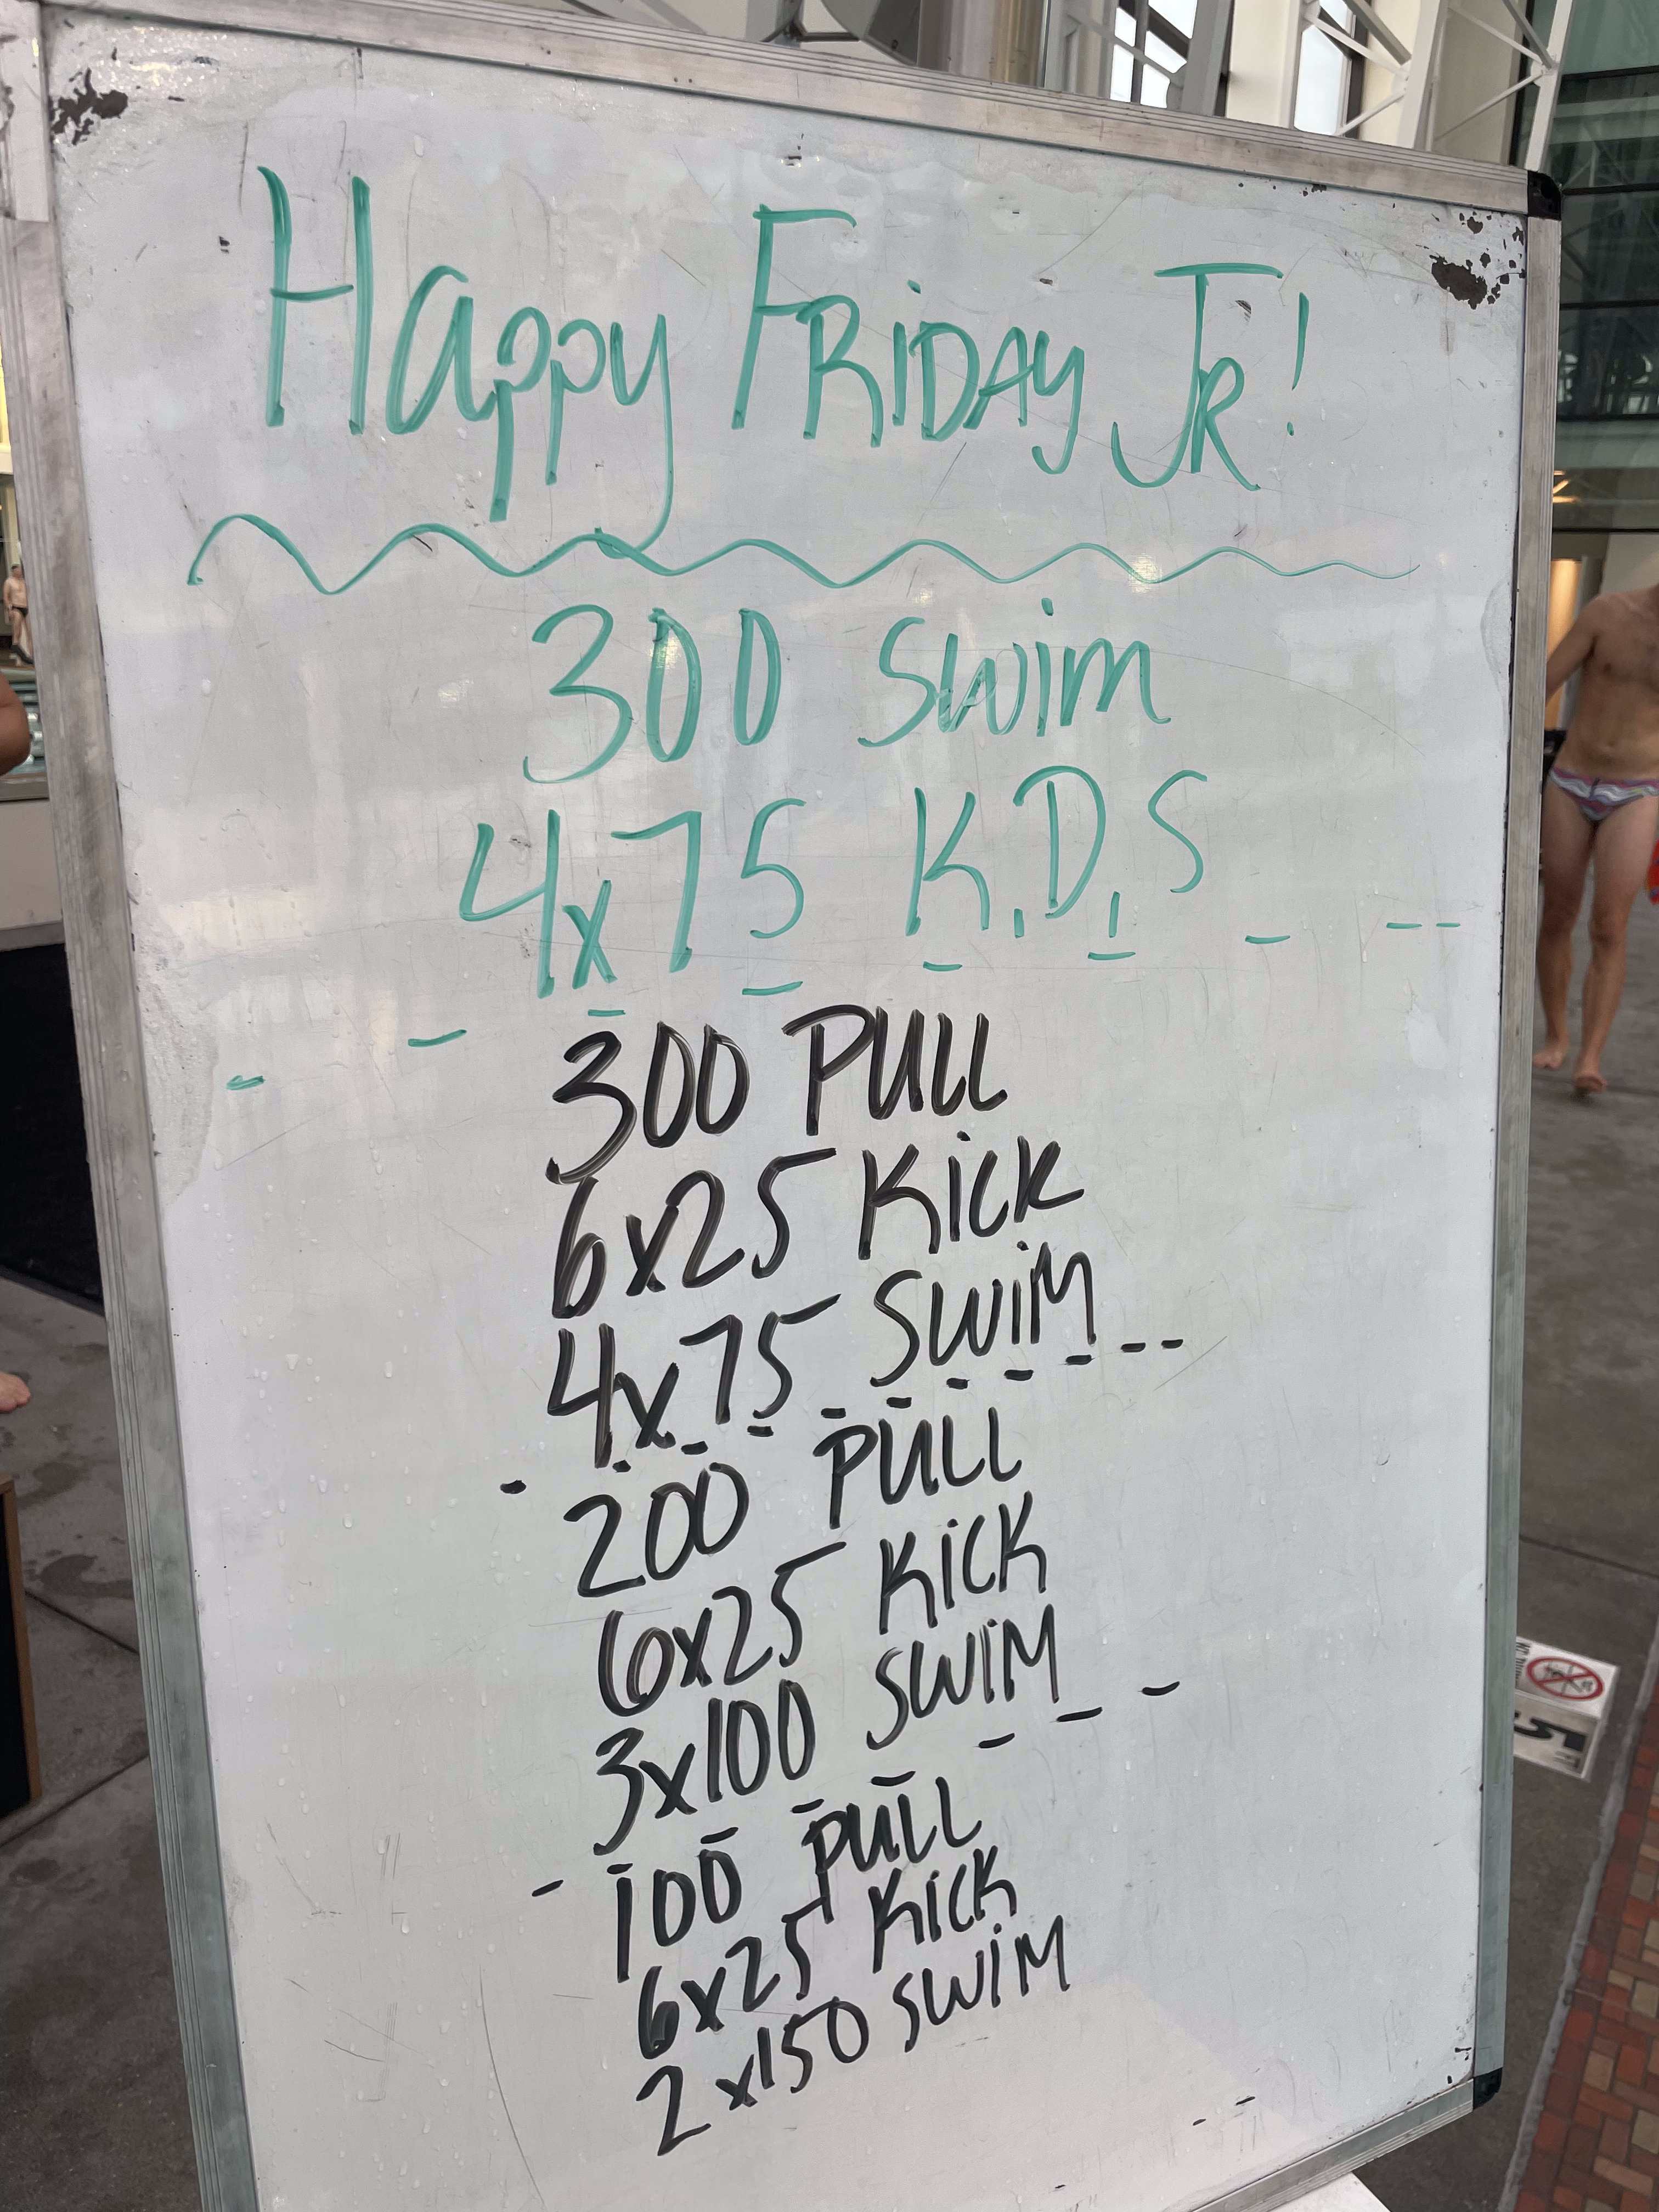 Happy FRiDAY JR!
300 Swim
4x75 K.D.S
300 PULL
6x25 Kick
4x75 SWiM
200 PULL
6x25 KiCK
3x100 SWiM
100 PULL
6x25 KiCK
2x150 SWiM
5 FT